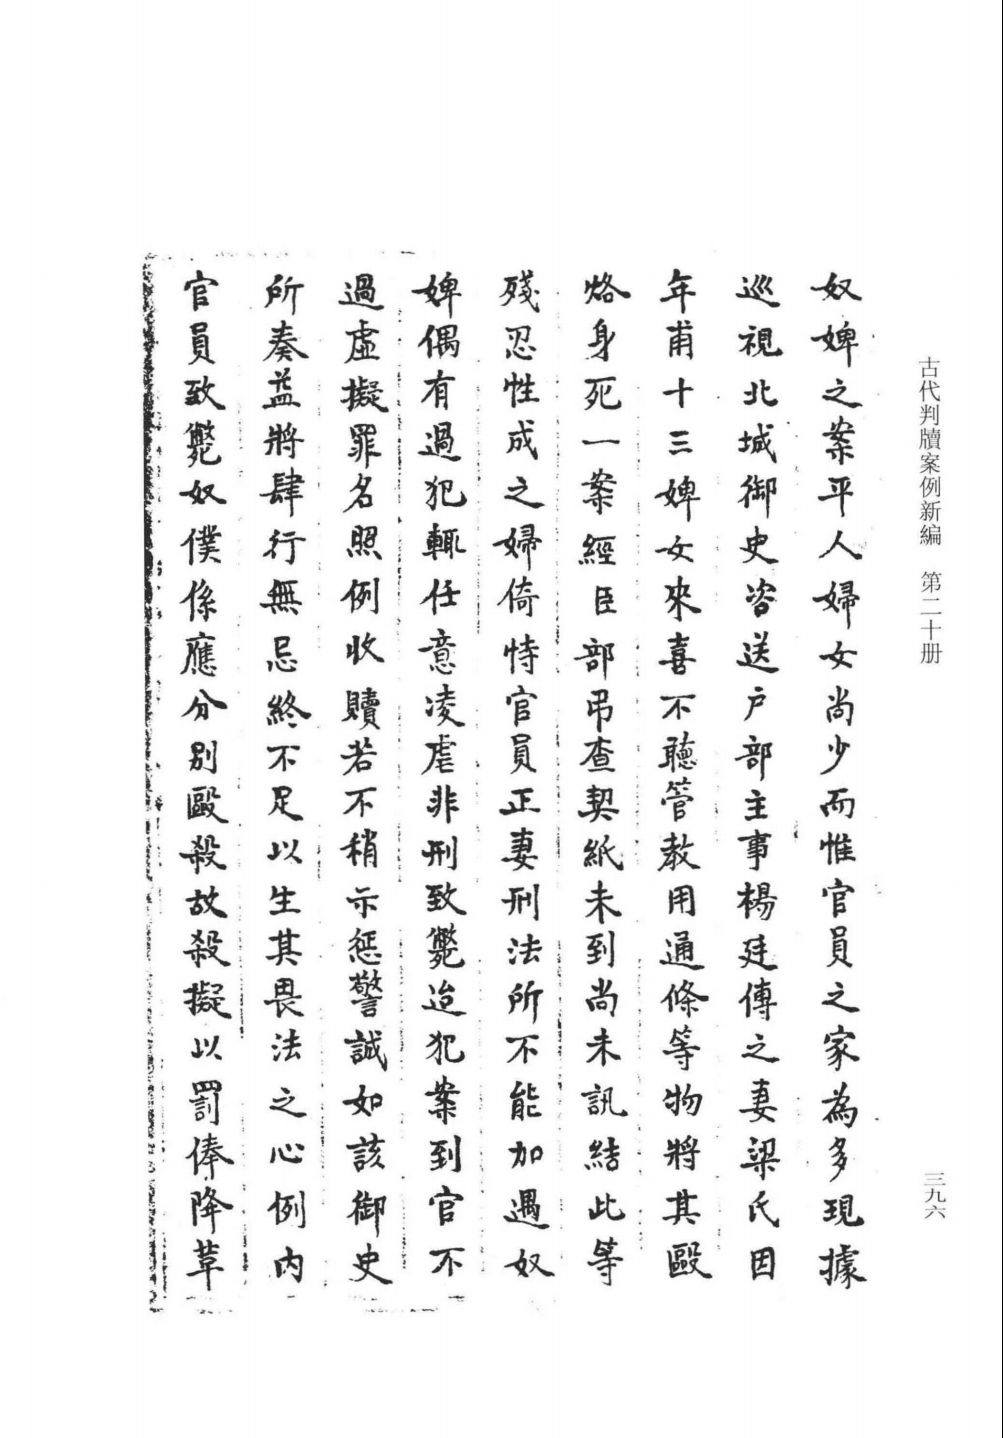 古代判牘案例新編　第二十册
三九六
奴婢之案平人婦女尚少而惟官員之家為多現據
巡視北城御史咨送户部主事楊廷傳之妻梁氏因
年甫十三婢女來喜不聽管教用通條等物將其毆
烙身死一案經臣部吊查契紙未到尚未訊結此等
殘忍性成之婦倚恃官員正妻刑法所不能加遇奴
婢偶有過犯輒任意凌虐非刑致斃迨犯案到官不
過虛擬罪名照例收贖若不稍示惩警誠如該御史
所奏益將肆行無忌終不足以生其畏法之心例内
官員致斃奴僕係應分别毆殺故殺擬以罰俸降草